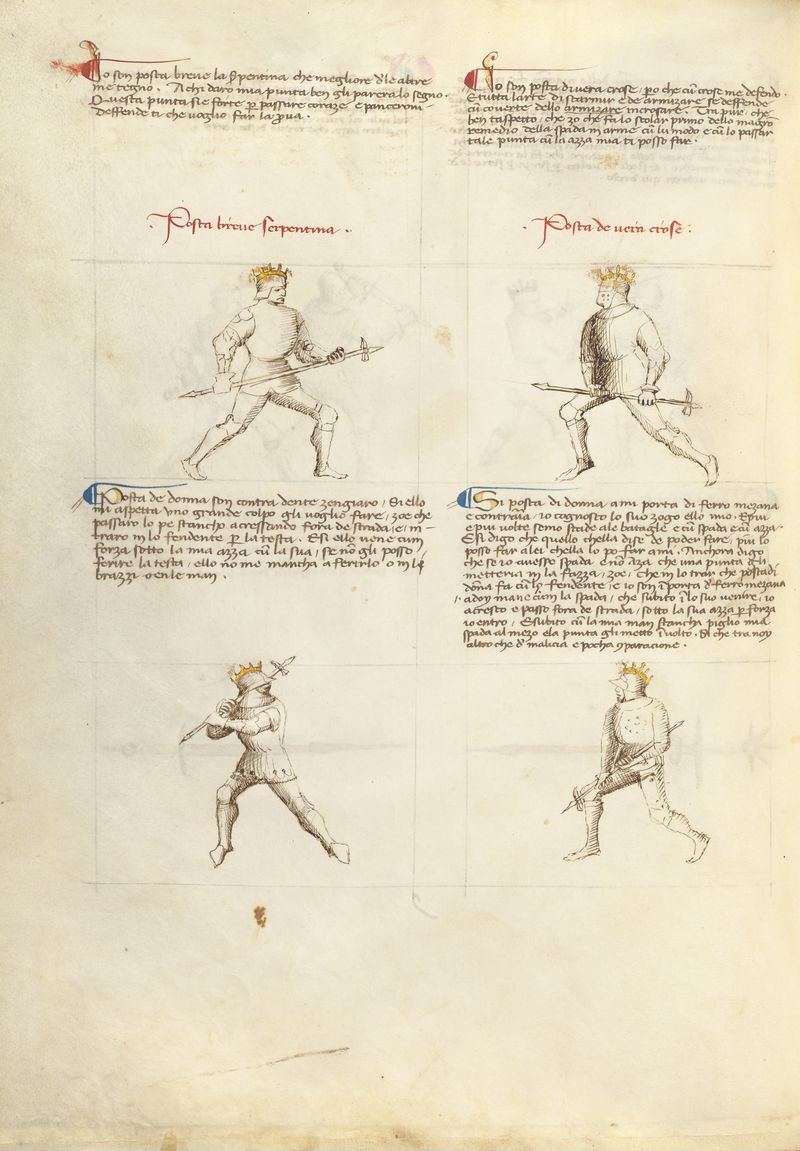 Io son posta breve la sperpentina che megliore d'le altre
me tegno. A chi daro mia punta ben gli parera lo segno.
Questa punta sie forte per passare coraze e panceroni
deffende ti che voglio far la prova.
Posta breve serpentina.
Io son posta di vera crose, po che cum crose me defendo.
E tutta larte di scarmir e de armizare se deffende
cum coverte dello armizare incrosare. Tra pur, che
ben t'aspetto, che zo che fa lo scolar primo dello magistro
remedio della spada in arme cum lu modo e cum lo passar
tale punta cum la azza mia ti posso far.
Posta de vera crose:
Posta de donna son contra dente zengiaro, Si ello
mi aspetta uno grande colpo gli voglio fare, zoe che
passaro lo pe stancho acressando fora de strada, e in-
traro in lo fendente per la testa. E si ello vene cum
forza sotto la mia azza cum la sua, se non gli posso
ferire la testa, ello no me mancha a ferirlo o in li
brazzi o en le man.
Si posta di donna a mi porta di ferro mezana
e contraria, io cognosco lo suo zogo ello mio. E piu
e piu volte semo stade ale bataglie e cum spada e cum azza.
E si digo che quello chella dise de poder fare, piu lo
posso far a lei chella lo po far a mi. Anchora digo
che se io avesse spada e no aza che una punta gli
metteria in la fazza, zoe, che in lo trar che posta di
dona fa cum lo fendente, e io son in porta d' ferro mezana
a doy mane cum la spada, che subito in lo suo venire, io
acresco e passo fora de strada, sotto la sua azza per forza
io entro, e subito cum la mia man stancha piglio mia
spada al mezo e la punta gli metto in volto. Si che tra noy
altro che d' malicia e pocha comparacione.